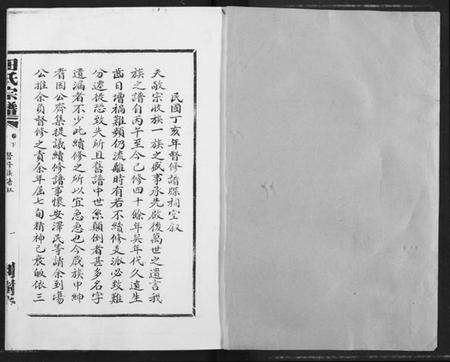 民國丁亥年督修譜牒祠堂叙
夫敬宗收族一族之盛事承先啟後萬世之遺言我
族之譜自丙午至今已修四十餘年矣年代久遠生
齒日增禍難頻仍流離時有若不續修支派必致難
分遠從恐致失所且舊譜中世系顛倒者甚多名字
遺漏者不少此續修之所以宜急急也今歲族中紳
耆因公齊集提議續修譜事懷安澤民等請余到場
公推余負督修之責余年屆七旬精神已衰敢依三
氏宗譜
卷下
一